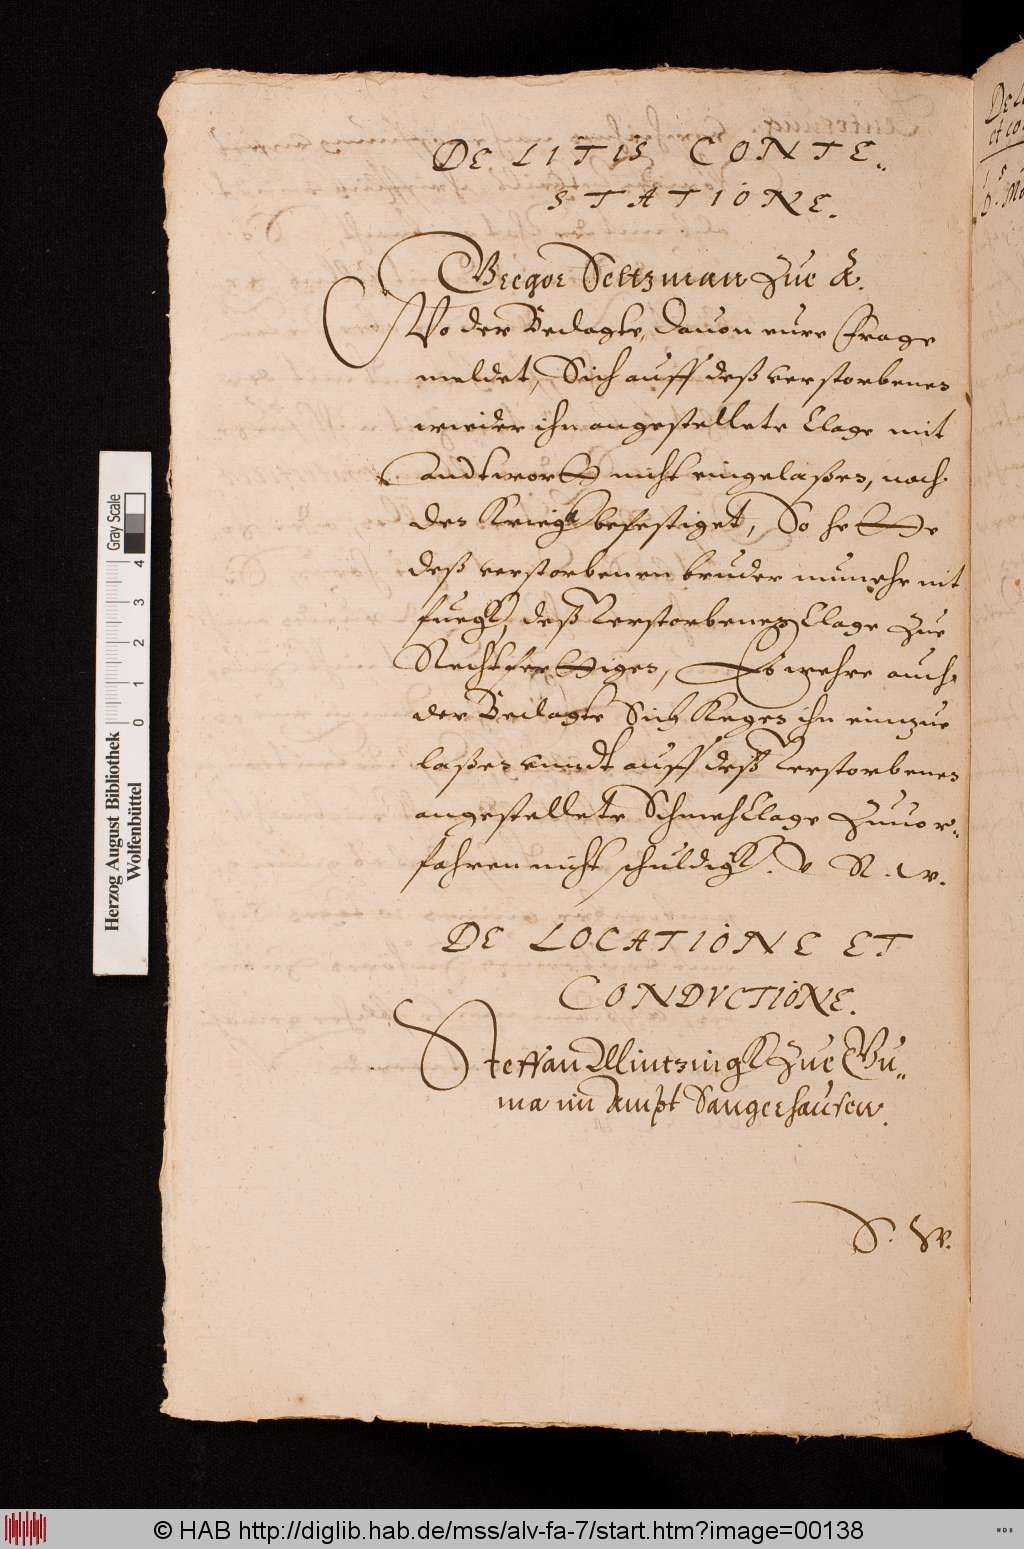 DE LITIS CONTE-
STATIONE.
Gregor Seltzman zue &.
Wo der Beclagte, dauon eure frage
meldet, Sich auff deß verstorbenen
wieder ihn angestellete Clage mit
andtwortt nicht eingelaßen, noch
den Kriegk befestiget, So hette
deß verstorbenen bruder nunmehr nit
fuegk, deß Verstorbenen Clage zue
Rechtferttigen, Es wehre auch
der Beclagte Sich Kegen ihn einzue
laßen vnndt auff deß Verstorbenen
angestellete SchmehClage Zuuor-
fahren nicht schuldigk. V R. w.
DE LOCATIONE ET
CONDVCTIONE.
Steffan Mintzingk Zue Bu-
ma im Ampt Sangerhausen.
S. W.
De
et co
Herzog August Bibliothek
Wolfenbüttel
Gray Scale
0 1 2 3 4
© HAB http://diglib.hab.de/mss/alv-fa-7/start.htm?image=00138